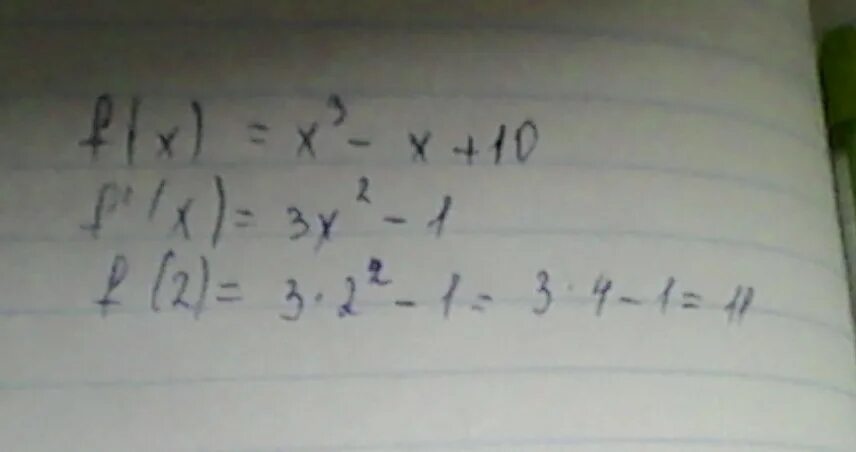 f(x) = x³ - x + 10
f'(x) = 3x² - 1
f(2) = 3·2² - 1 = 3·4 - 1 = 11